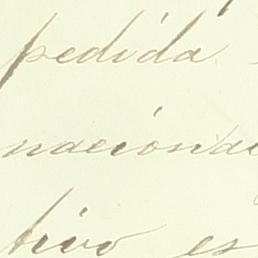 pedida
nacional
tivo es